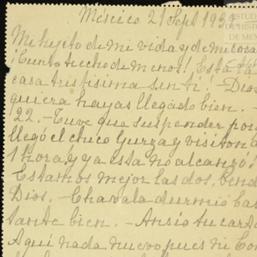 México 21 Sept 193
Mi hijito de mi vida y de mi coraz
¡Cuanto te hecho de menos! Está la
casa tristísima sin ti - Dios
quiera hayas llegado bien.
22.- Tuve que suspender por
llegó el chico Gurza y visitón d
1 hora, y ya esta no alcanzó!
Estamos mejor las dos, bend
Dios. - Chavala durmió bas
tante bien. - Ansío tu carta
Aquí nada nuevo pues ni Con